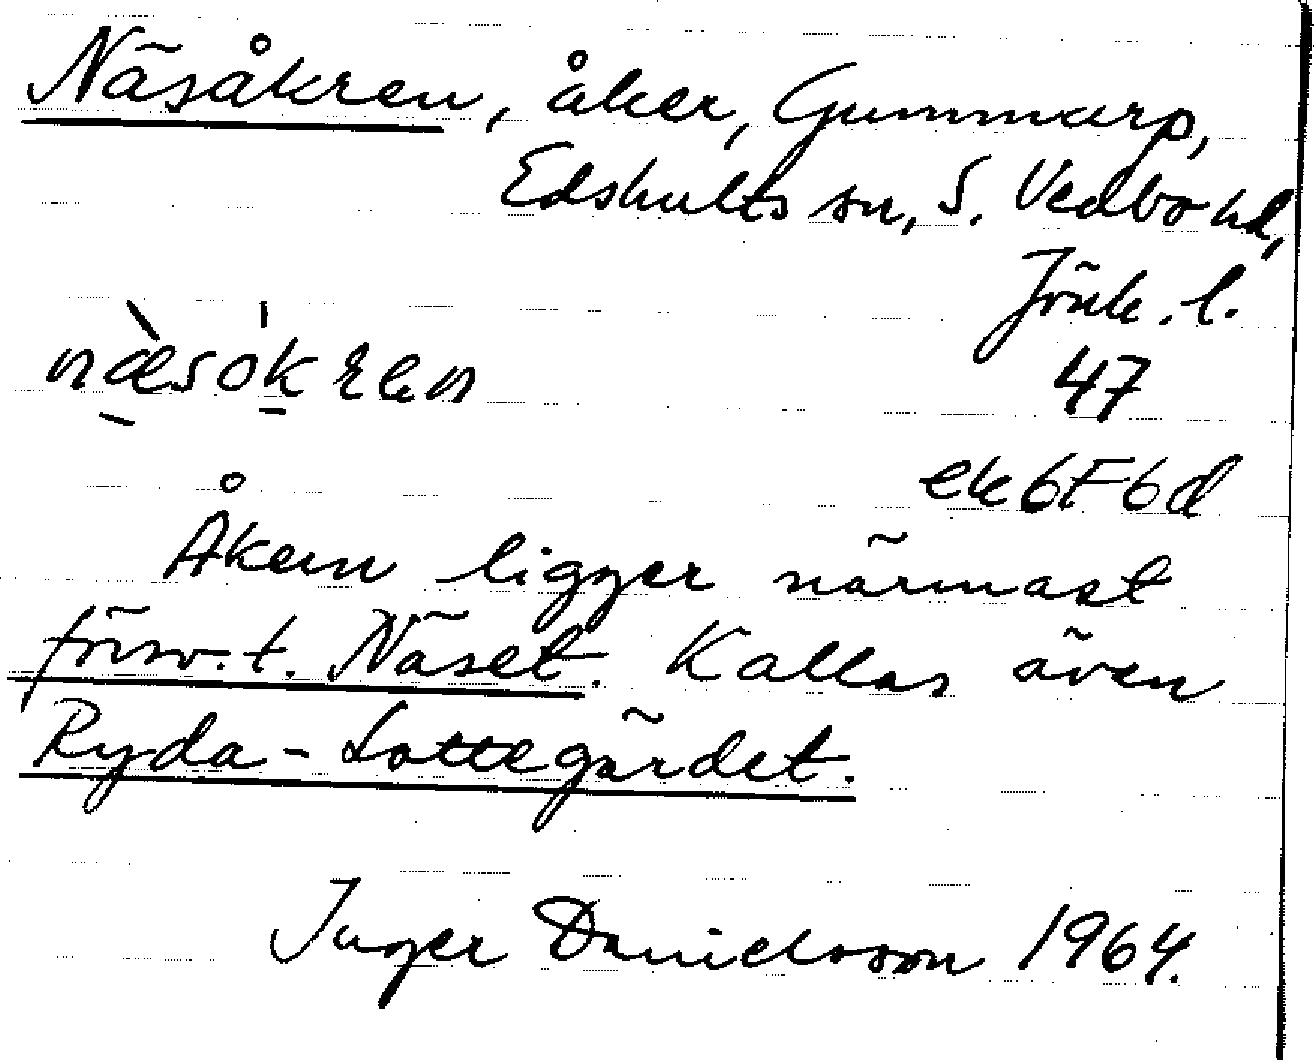 Näsåkren, åker, Gummarp,
Edshults sn, S. Vedbo hd,
Jönk. l.
næ̀sókren
47
ek 6F6d
Åkern ligger närmast
försv. t. Näset. Kallas även
Ryda-Lottegärdet.
Inger Danielsson 1964.